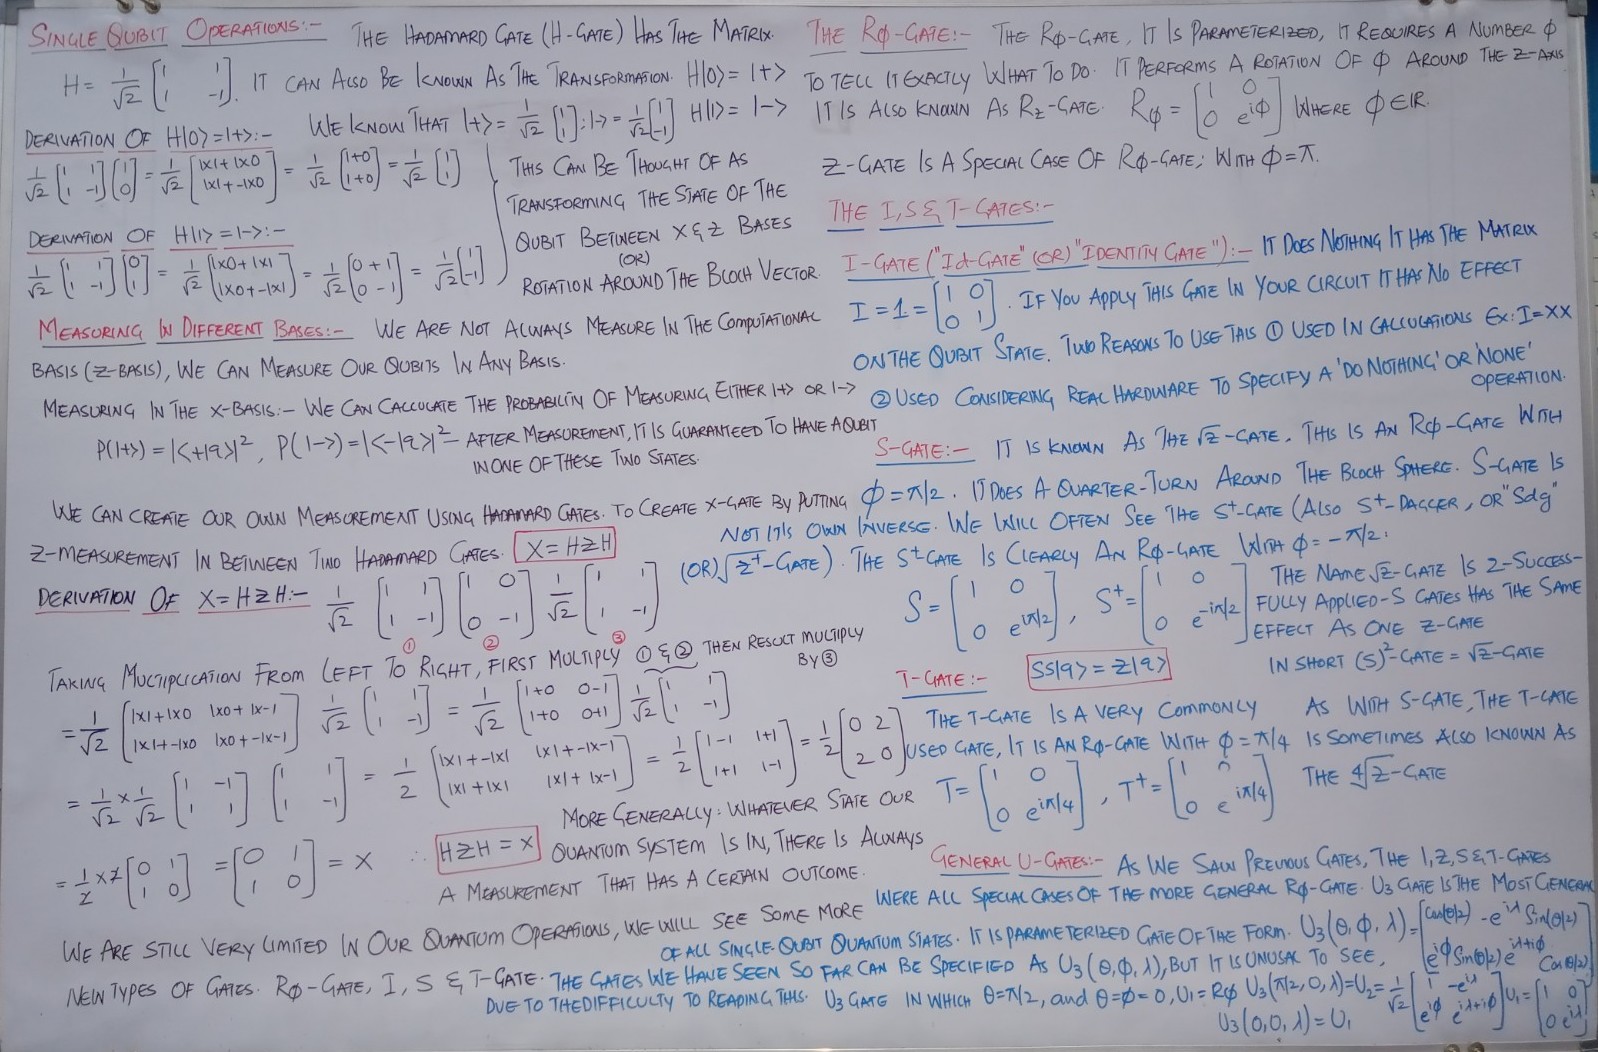 SINGLE QUBIT OPERATIONS:- THE HADAMARD GATE (H-GATE) HAS THE MATRIX.
H = 1/√2 [1 1; 1 -1]. IT CAN ALSO BE KNOWN AS THE TRANSFORMATION. H|0> = |+>
WE KNOW THAT |+> = 1/√2 [1; 1] ; |-> = 1/√2 [1; -1] H|1> = |->
DERIVATION OF H|0> = |+>:-
1/√2 [1 1; 1 -1] [1; 0] = 1/√2 [1×1+1×0; 1×1+-1×0] = 1/√2 [1+0; 1+0] = 1/√2 [1; 1]
DERIVATION OF H|1> = |->:-
1/√2 [1 1; 1 -1] [0; 1] = 1/√2 [1×0+1×1; 1×0+-1×1] = 1/√2 [0+1; 0-1] = 1/√2 [1; -1]
THIS CAN BE THOUGHT OF AS
TRANSFORMING THE STATE OF THE
QUBIT BETWEEN X & Z BASES
(OR)
ROTATION AROUND THE BLOCH VECTOR.
MEASURING IN DIFFERENT BASES:- WE ARE NOT ALWAYS MEASURE IN THE COMPUTATIONAL
BASIS (Z-BASIS), WE CAN MEASURE OUR QUBITS IN ANY BASIS.
MEASURING IN THE X-BASIS:- WE CAN CALCULATE THE PROBABILITY OF MEASURING EITHER |+> OR |->
P(|+>) = |<+|q>|², P(|->) = |<-|q>|² - AFTER MEASUREMENT, IT IS GUARANTEED TO HAVE A QUBIT
IN ONE OF THESE TWO STATES.
WE CAN CREATE OUR OWN MEASUREMENT USING HADAMARD GATES. TO CREATE X-GATE BY PUTTING
Z-MEASUREMENT IN BETWEEN TWO HADAMARD GATES. X = HZH
DERIVATION OF X = HZH:- 1/√2 [1 1; 1 -1] [1 0; 0 -1] 1/√2 [1 1; 1 -1]
① ② ③
TAKING MULTIPLICATION FROM LEFT TO RIGHT, FIRST MULTIPLY ① & ② THEN RESULT MULTIPLY
BY ③
= 1/√2 [1×1+1×0 1×0+1×-1; 1×1+-1×0 1×0+-1×-1] 1/√2 [1 1; 1 -1] = 1/√2 [1+0 0-1; 1+0 0+1] 1/√2 [1 1; 1 -1]
= 1/√2 × 1/√2 [1 -1; 1 1] [1 1; 1 -1] = 1/2 [1×1+-1×1 1×1+-1×-1; 1×1+1×1 1×1+1×-1] = 1/2 [1-1 1+1; 1+1 1-1] = 1/2 [0 2; 2 0]
= 1/2 × 2 [0 1; 1 0] = [0 1; 1 0] = X ∴ HZH = X
MORE GENERALLY: WHATEVER STATE OUR
QUANTUM SYSTEM IS IN, THERE IS ALWAYS
A MEASUREMENT THAT HAS A CERTAIN OUTCOME.
WE ARE STILL VERY LIMITED IN OUR QUANTUM OPERATIONS, WE WILL SEE SOME MORE
NEW TYPES OF GATES. Rϕ-GATE, I, S & T-GATE.
THE Rϕ-GATE:- THE Rϕ-GATE, IT IS PARAMETERIZED, IT REQUIRES A NUMBER ϕ
TO TELL IT EXACTLY WHAT TO DO. IT PERFORMS A ROTATION OF ϕ AROUND THE Z-AXIS
IT IS ALSO KNOWN AS Rz-GATE. Rϕ = [1 0; 0 e^iϕ] WHERE ϕ ∈ IR.
Z-GATE IS A SPECIAL CASE OF Rϕ-GATE; WITH ϕ = π.
THE I, S & T-GATES:-
I-GATE ("Id-GATE" (OR) "IDENTITY GATE"):- IT DOES NOTHING IT HAS THE MATRIX
I = 1 = [1 0; 0 1]. IF YOU APPLY THIS GATE IN YOUR CIRCUIT IT HAS NO EFFECT
ON THE QUBIT STATE. TWO REASONS TO USE THIS ① USED IN CALCULATIONS EX: I = XX
② USED CONSIDERING REAL HARDWARE TO SPECIFY A 'DO NOTHING' OR 'NONE'
OPERATION.
S-GATE:- IT IS KNOWN AS THE √Z-GATE. THIS IS AN Rϕ-GATE WITH
ϕ = π/2. IT DOES A QUARTER-TURN AROUND THE BLOCH SPHERE. S-GATE IS
NOT IT'S OWN INVERSE. WE WILL OFTEN SEE THE S†-GATE (ALSO S†-DAGGER, OR "Sdg"
(OR) √Z†-GATE). THE S†-GATE IS CLEARLY AN Rϕ-GATE WITH ϕ = -π/2.
S = [1 0; 0 e^iπ/2], S† = [1 0; 0 e^-iπ/2]
THE NAME √Z-GATE IS 2-SUCCESS-
FULLY APPLIED-S GATES HAS THE SAME
EFFECT AS ONE Z-GATE
IN SHORT (S)²-GATE = √Z-GATE
SS|q> = Z|q>
T-GATE:-
THE T-GATE IS A VERY COMMONLY
USED GATE, IT IS AN Rϕ-GATE WITH ϕ = π/4
AS WITH S-GATE, THE T-GATE
IS SOMETIMES ALSO KNOWN AS
THE ∜Z-GATE
T = [1 0; 0 e^iπ/4], T† = [1 0; 0 e^iπ/4]
GENERAL U-GATES:- AS WE SAW PREVIOUS GATES, THE I, Z, S & T-GATES
WERE ALL SPECIAL CASES OF THE MORE GENERAL Rϕ-GATE. U3 GATE IS THE MOST GENERAL
OF ALL SINGLE-QUBIT QUANTUM STATES. IT IS PARAMETERIZED GATE OF THE FORM. U3(θ, ϕ, λ) = [Cos(θ/2) -e^iλ Sin(θ/2); e^iϕ Sin(θ/2) e^iλ+iϕ Cos(θ/2)]
THE GATES WE HAVE SEEN SO FAR CAN BE SPECIFIED AS U3(θ, ϕ, λ), BUT IT IS UNUSAL TO SEE,
DUE TO THE DIFFICULTY TO READING THIS. U3 GATE IN WHICH θ = π/2, and θ = ϕ = 0, U1 = Rϕ U3(π/2, 0, λ) = U2 = 1/√2 [1 -e^iλ; e^iϕ e^iλ+iϕ] U1 = [1 0; 0 e^iλ]
U3(0, 0, λ) = U1